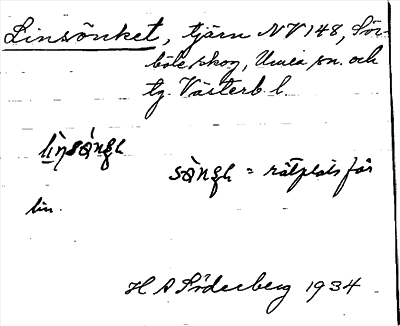 Linsönket, tjärn NV 148, Sör-
böle skog, Umeå sn. och
tg. Västerb. l.
sàngk = rötplats för
lin.
H A Söderberg 1934